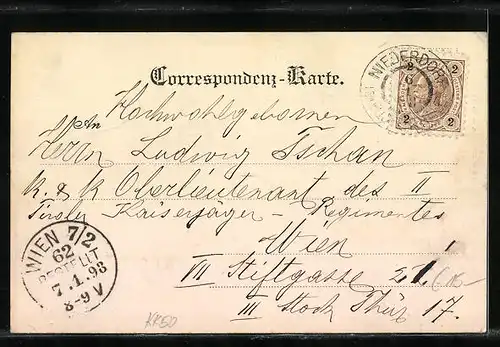 Correspondenz-Karte.
NIEDERDORF
6
2 2
2 2
Hochwohlgeboren
An
Herrn Ludwig Tschan
k. & k Oberlieutenant des II
Tiroler Kaiserjäger-Regimentes
Wien
VII Stiftgasse 21.
III Stock Thür 17.
WIEN 7/2
62
BESTELLT
7.1.98
8-9V
KK50